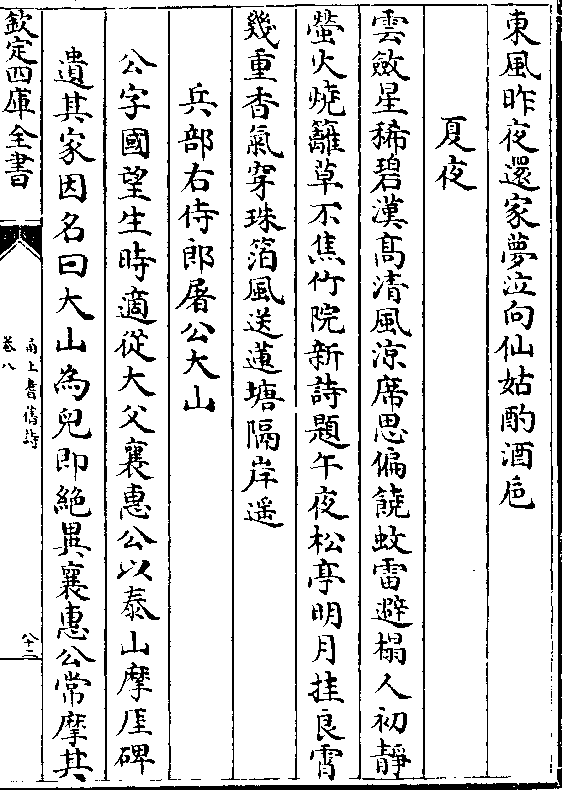 東風昨夜還家夢泣向仙姑酌酒巵
夏夜
雲斂星稀碧漢髙清風涼席思偏饒蚊雷避榻人初靜
螢火燒籬草不焦竹院新詩題午夜松亭明月挂良霄
幾重香氣穿珠箔風送蓮塘隔岸遥
兵部右侍郎屠公大山
公字國望生時適從大父襄惠公以泰山摩厓碑
遺其家因名曰大山為兒即絶異襄惠公常摩其
欽定四庫全書
甬上耆舊詩
卷八